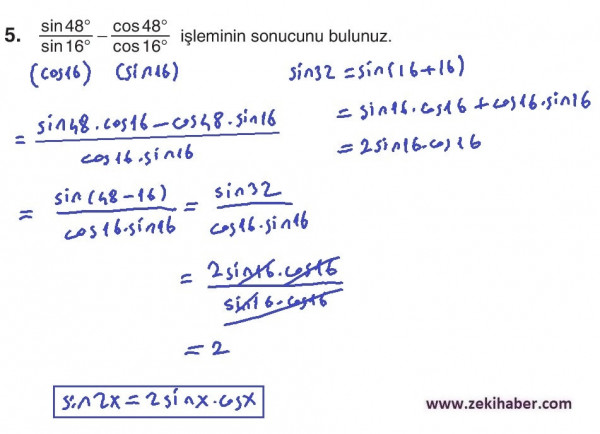 5. sin 48° / sin 16° − cos 48° / cos 16° işleminin sonucunu bulunuz.
(cos16) (sin16)
sin32 = sin(16+16)
= sin16.cos16 + cos16.sin16
= 2sin16.cos16
= sin48.cos16 − cos48.sin16 / cos16.sin16
= sin(48−16) / cos16.sin16 = sin32 / cos16.sin16
= 2sin16.cos16 / sin16.cos16
= 2
sin2x = 2sinx.cosx
www.zekihaber.com